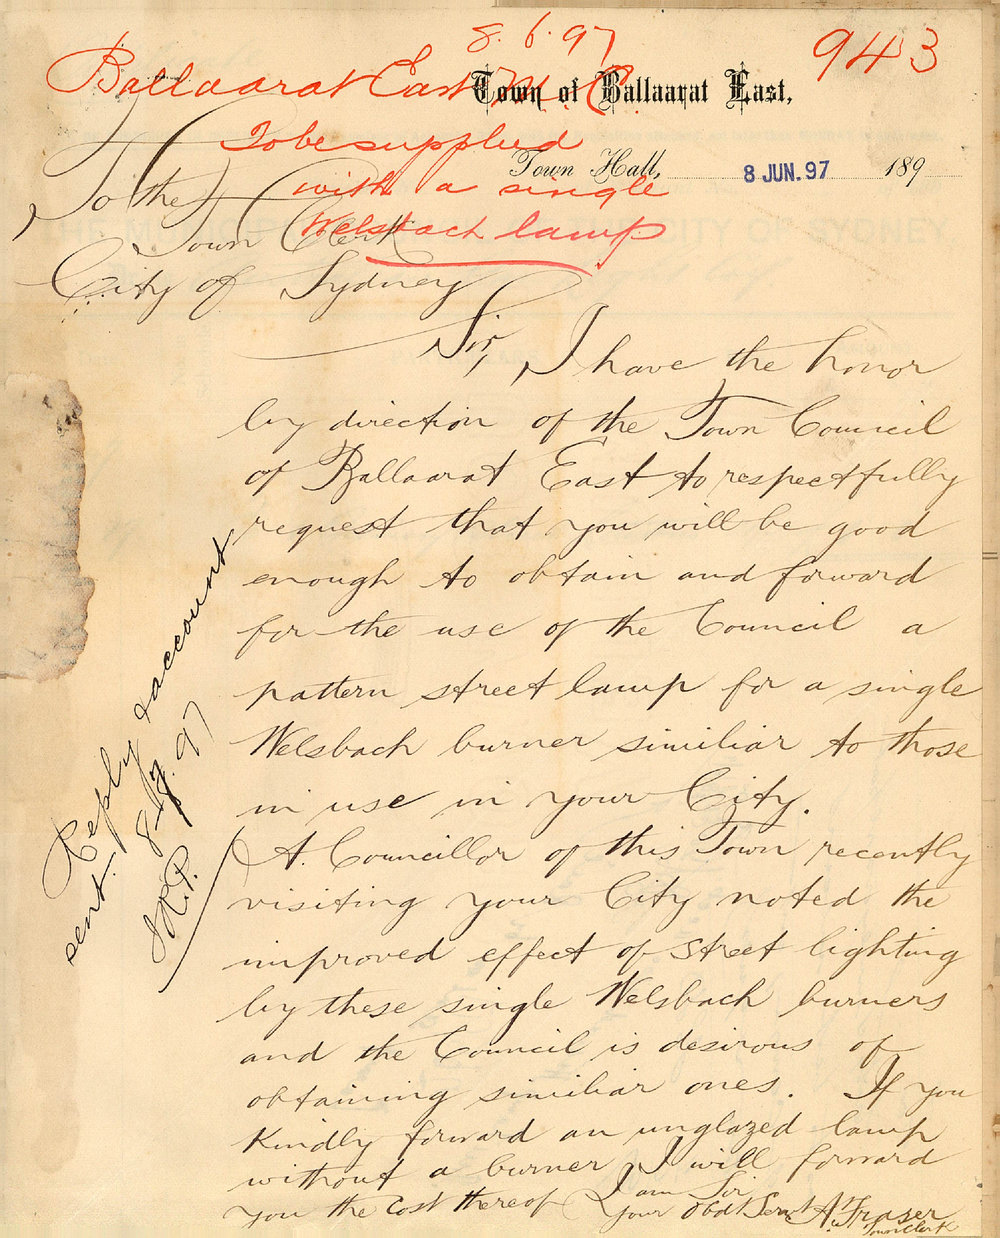 8.6.97
943
Ballaarat East
Town of Ballaarat East,
To be supplied
with a single
Welsbach lamp
Town Hall, 8 JUN. 97 189
To the
Town Clerk
City of Sydney
Sir,
I have the honor
by direction of the Town Council
of Ballaarat East to respectfully
request that you will be good
enough to obtain and forward
for the use of the Council a
pattern street lamp for a single
Welsbach burner similiar to those
in use in your City.
A Councillor of this Town recently
visiting your City noted the
improved effect of street lighting
by these single Welsbach burners
and the Council is desirous of
obtaining similiar ones. If you
kindly forward an unglazed lamp
without a burner I will forward
you the cost thereof
I am Sir
Your Obdt Servt
A. Fraser
Town Clerk
Reply & account
sent.
97